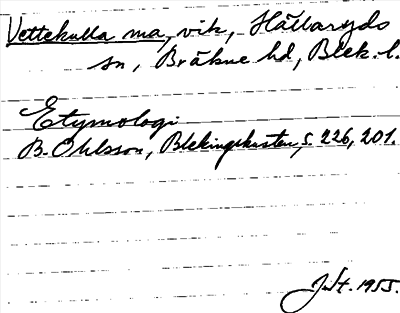 Vettekulla ma, vik, Hällaryds
sn, Bräkne hd, Blek. l.
Etymologi
B. Ohlsson, Blekingekusten, s. 226, 201.
1955.